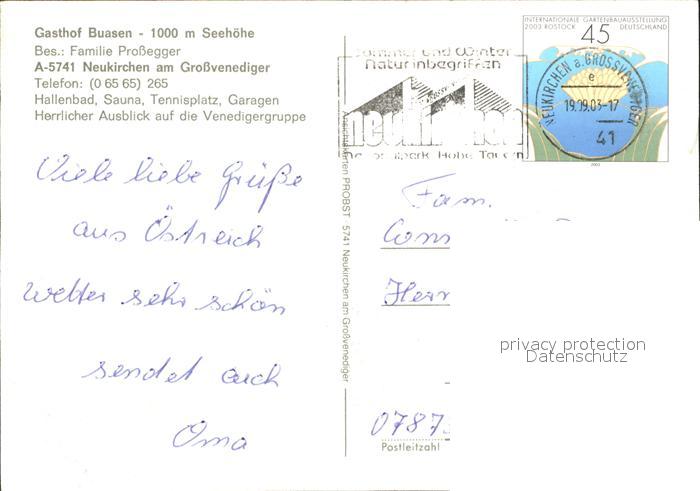 Gasthof Buasen - 1000 m Seehöhe
Bes.: Familie Proßegger
A-5741 Neukirchen am Großvenediger
Telefon: (0 65 65) 265
Hallenbad, Sauna, Tennisplatz, Garagen
Herrlicher Ausblick auf die Venedigergruppe
Viele liebe Grüße
aus Östreich
Wetter sehr schön
sendet euch
Oma
Ansichtskarten PROBST · 5741 Neukirchen am Großvenediger
Sommer und Winter
Natur inbegriffen
neukirchen
Nationalpark Hohe Tauern
INTERNATIONALE GARTENBAUAUSSTELLUNG
2003 ROSTOCK DEUTSCHLAND
45
NEUKIRCHEN a. GROSSVENEDIGER
e
19.09.03-17
41
2003
Fam.
Cons
Herr
privacy protection
Datenschutz
0787
Postleitzahl